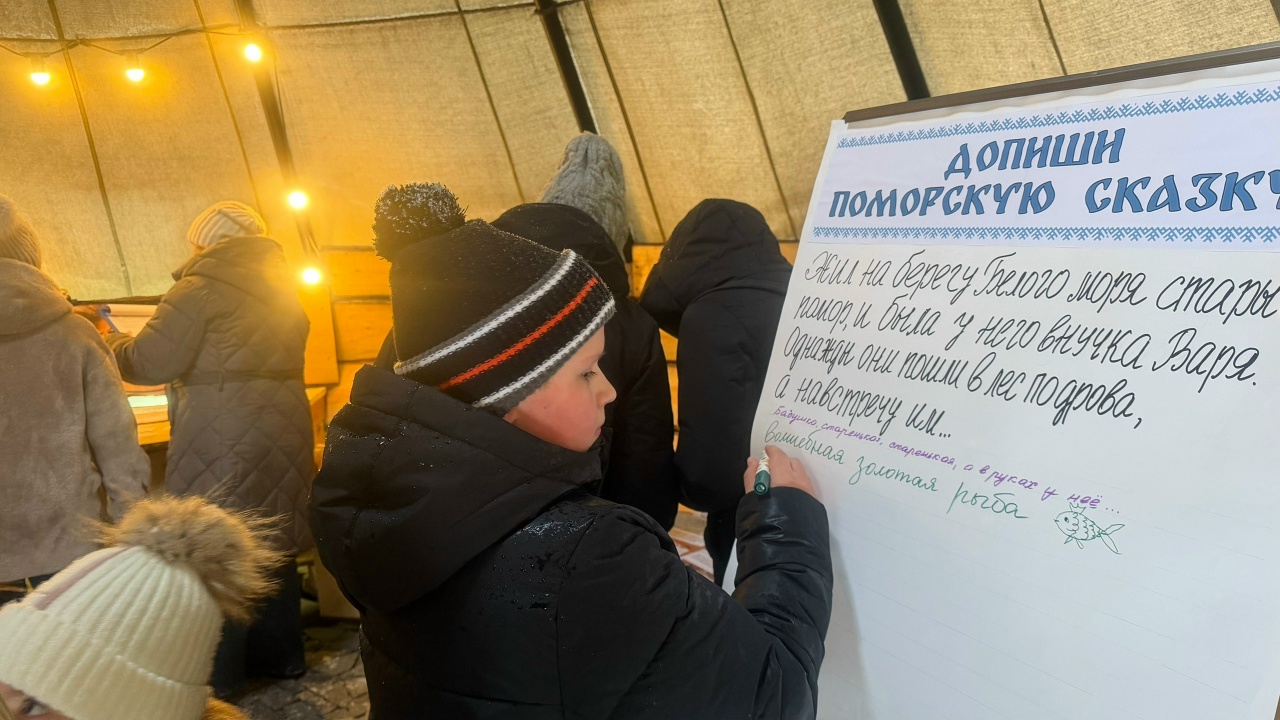 ДОПИШИ
ПОМОРСКУЮ СКАЗКУ
Жил на берегу Белого моря стары
помор, и была у него внучка Варя.
Однажды они пошли в лес по дрова,
а навстречу им...
Бабушка, старенькая, старенькая, а в руках у неё...
волшебная золотая рыба